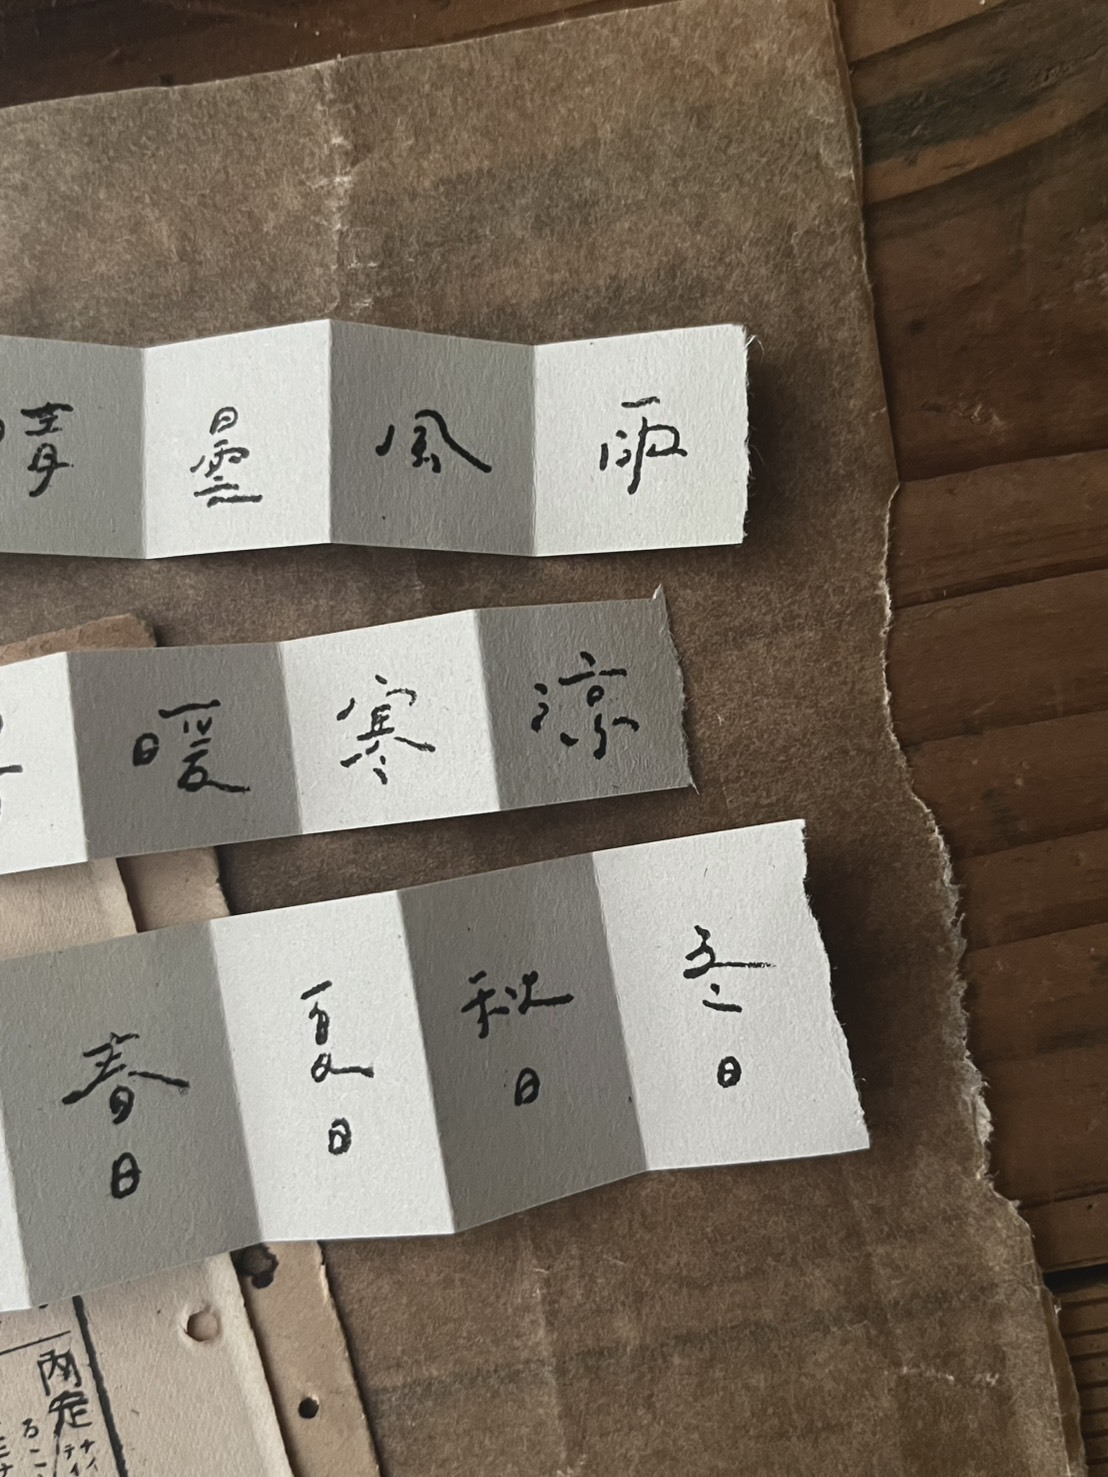 晴 曇 風 雨
暖 寒 涼
春日 夏日 秋日 冬日
内定
ナイ
テイ